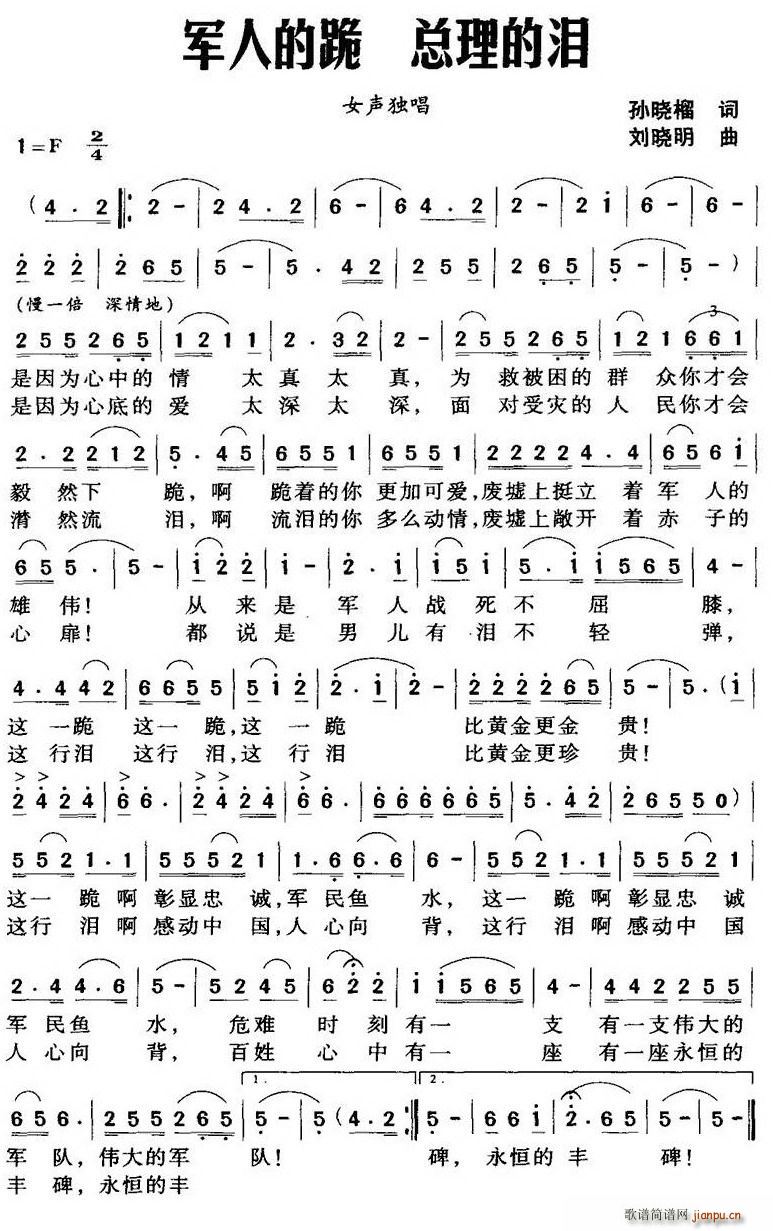 军人的跪 总理的泪
女声独唱
孙晓榴 词
1=F 2/4
刘晓明 曲
(4.2 |: 2 - | 2 4.2 | 6 - | 6 4.2 | 2 - | 2 i | 6 - | 6 - |
2 2 2 | 2 6 5 | 5 - | 5. 4 2 | 2 5 5 | 2 6 5 | 5 - | 5 - )|
(慢一倍 深情地)
2 5 5 2 6 5 | 1 2 1 1 | 2. 3 2 | 2 - | 2 5 5 2 6 5 | 1 2 1 6 6 1 |
3
是因为心中的 情 太 真 太 真, 为 救被困的 群 众你才会
是因为心底的 爱 太 深 太 深, 面 对受灾的 人 民你才会
2.2 2 2 1 2 | 5. 4 5 | 6 5 5 1 | 6 5 5 1 | 2 2 2 2 4.4 | 6 5 6 i |
毅 然下 跪, 啊 跪着的你 更加可爱,废墟上挺立 着 军 人的
潸 然流 泪, 啊 流泪的你 多么动情,废墟上敞开 着 赤 子的
6 5 5. | 5 - | i 2 2 | i - | 2. i | i 5 i | 5. i | i 5 6 5 | 4 - |
雄 伟! 从 来 是 军 人 战 死 不 屈 膝,
心 扉! 都 说 是 男 儿 有 泪 不 轻 弹,
4.4 4 2 | 6 6 5 5 | 5 i 2 | 2. i | 2 - | 2 2 2 2 6 5 | 5 - | 5. (i |
这 一跪 这一 跪,这 一 跪 比黄金更金 贵!
这 行泪 这行 泪,这 行 泪 比黄金更珍 贵!
2 4 2 4 | 6 6. | 2 4 2 4 | 6 6. | 6 6 6 6 6 5 | 5. 4 2 | 2 6 5 5 0 )|
5 5 2 1.1 | 5 5 5 2 1 | 1.6 6.6 | 6 - | 5 5 2 1.1 | 5 5 5 2 1 |
这一 跪 啊 彰显忠 诚,军 民鱼 水, 这一 跪 啊 彰显忠 诚
这行 泪 啊 感动中 国,人 心向 背, 这行 泪 啊 感动中 国
2.4 4.6 | 5 - | 5 2 4 5 | 6 2 2 | i | i 5 6 5 | 4 - | 4 4 2 2 5 5 |
军 民鱼 水, 危难 时 刻 有一 支 有一支伟大的
人 心向 背, 百姓 心 中 有一 座 有一座永恒的
1. 2.
6 5 6. | 2 5 5 2 6 5 | 5 - | 5 (4.2 :| 5 - | 6 6 i | 2. 6 5 | 5 - | 5 - ||
军 队, 伟大的军 队! 碑, 永恒的 丰 碑!
丰 碑, 永恒的丰
歌谱简谱网
jianpu.cn